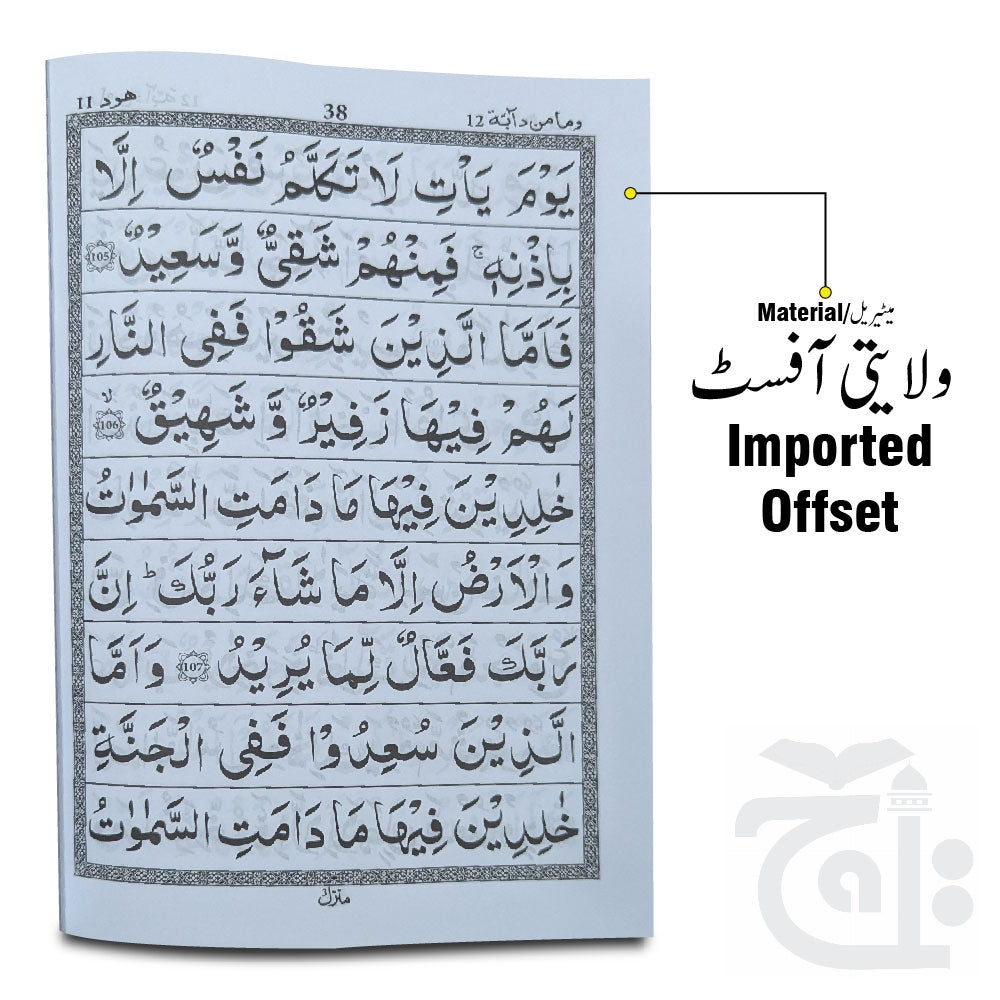 هود 11
38
وما من دآبّة 12
يَوْمَ يَاْتِ لَا تَكَلَّمُ نَفْسٌ اِلَّا
بِاِذْنِهٖ ۚ فَمِنْهُمْ شَقِىٌّ وَّسَعِيْدٌ 105
فَاَمَّا الَّذِيْنَ شَقُوْا فَفِى النَّارِ
لَهُمْ فِيْهَا زَفِيْرٌ وَّ شَهِيْقٌ ۙ 106
خٰلِدِيْنَ فِيْهَا مَا دَامَتِ السَّمٰوٰتُ
وَالْاَرْضُ اِلَّا مَا شَآءَ رَبُّكَ ؕ اِنَّ
رَبَّكَ فَعَّالٌ لِّمَا يُرِيْدُ 107 وَاَمَّا
الَّذِيْنَ سُعِدُوْا فَفِى الْجَنَّةِ
خٰلِدِيْنَ فِيْهَا مَا دَامَتِ السَّمٰوٰتُ
منزل ٣
Material/میٹیریل
ولایتی آفسٹ
Imported
Offset